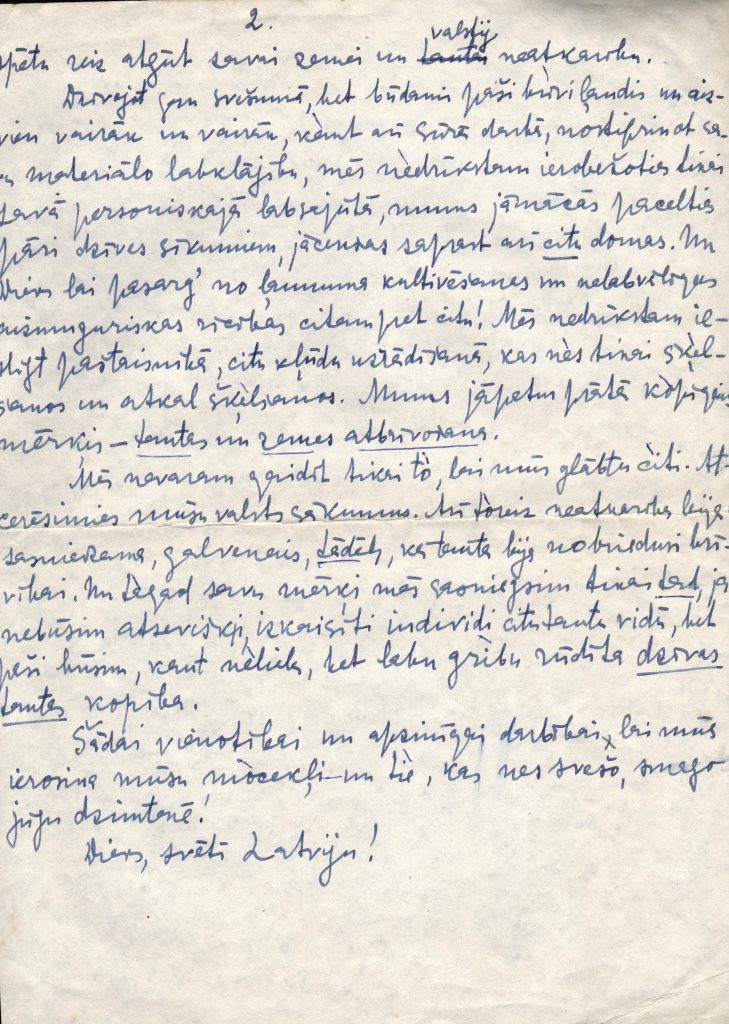 2.
valstij
spētu reiz atgūt savai zemei un tautai neatkarību.
Dzīvojot gan svešumā, bet būdami paši brīvi ļaudis un aiz-
vien vairāk un vairāk, kaut arī sūrā darbā, nostiprinot sa-
vu materiālo labklājību, mēs nedrīkstam ierobežoties tikai
savā personiskajā labsajūtā, mums jāmācās pacelties
pāri dzīves sīkumiem, jācenšas saprast arī citu domas. Un
Dievs lai pasarg' no ļaunuma kultivēšanas un nelabvēlīgas
aizmuguriskas rīcības citam pret citu! Mēs nedrīkstam ie-
slīgt paštaisnībā, citu kļūdu uzrādīšanā, kas nes tikai šķel-
šanos un atkal šķelšanos. Mums jāpatur prātā kopīgais
mērķis – tautas un zemes atbrīvošana.
Mēs nevaram gaidīt tikai to, lai mūs glābtu citi. At-
cerēsimies mūsu valsts sākumus. Arī toreiz neatkarība bija
sasniedzama, galvenais, tādēļ, ka tauta bija nobriedusi brī-
vībai. Un tagad savu mērķi mēs sasniegsim tikai tad, ja
nebūsim atsevišķi, izkaisīti indivīdi citu tautu vidū, bet
paši būsim, kaut neliela, bet labu gribu rūdīta dzīvas
tautas kopība.
Šādai vienotībai un apzinīgai darbībai, lai mūs
ierosina mūsu mocekļi – un tie, kas nes svešo, smago
jūgu dzimtenē!
Dievs, svētī Latviju!